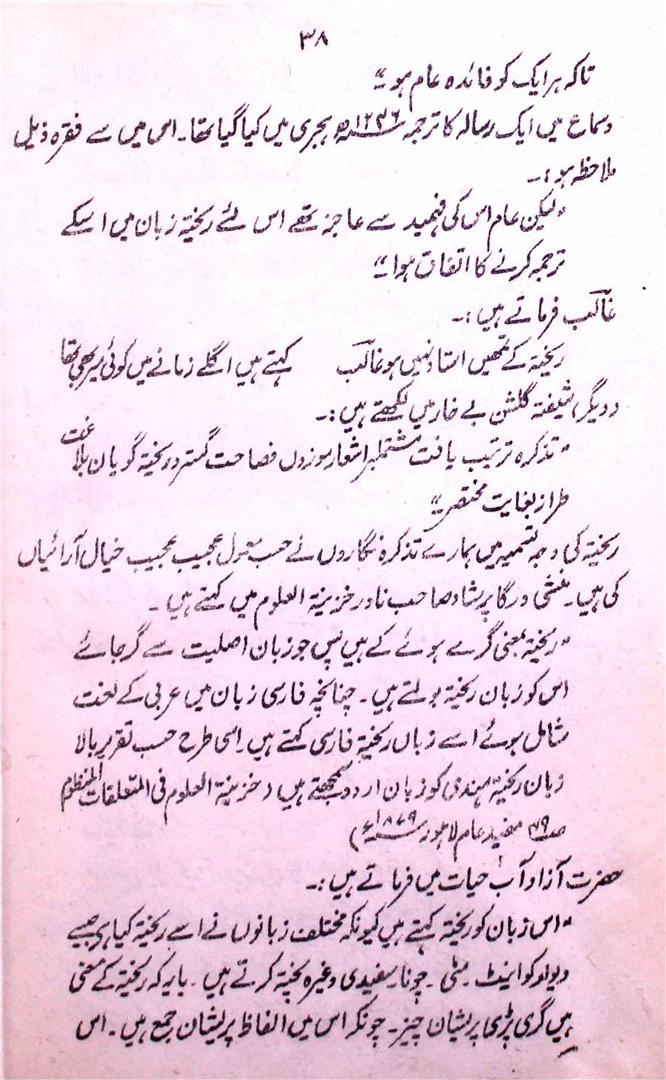 ۳۸
تاکہ ہر ایک کو فائدہ عام ہو۔"
وسماع میں ایک رسالہ کا ترجمہ ۱۲۳۶ھ ہجری میں کیا گیا تھا۔ اس میں سے فقرہ ذیل
ملاحظہ ہو:۔
"لیکن عام اس کی فہمید سے عاجز تھے اس لئے ریختہ زبان میں اسکے
ترجمہ کرنے کا اتفاق ہوا"
غالب فرماتے ہیں:۔
ریختہ کے تمھیں استاد نہیں ہو غالب کہتے ہیں اگلے زمانے میں کوئی میر بھی تھا
دیگر، شیفتہ گلشن بے خار میں لکھتے ہیں:۔
"تذکرہ ترتیب یافت مشتملبر اشعار موزوں فصاحت گستر و ریختہ گویان بلاغت
طراز بغایت مختصر"
ریختہ کی وجہ تسمیہ میں ہمارے تذکرہ نگاروں نے حسب معمول عجیب عجیب خیال آرائیاں
کی ہیں۔ منشی درگا پرشاد صاحب نادر خزینۃ العلوم میں کہتے ہیں۔
"ریختہ بمعنی گرے ہوئے کے ہیں پس جو زبان اصلیت سے گر جائے
اس کو زبان ریختہ بولتے ہیں۔ چنانچہ فارسی زبان میں عربی کے لغت
شامل ہوئے اسے زباں ریختہ فارسی کہتے ہیں۔ اسی طرح حسب تقریر بالا
زبان ریختہ ہندی کو زبان اردو سمجھتے ہیں (خزینۃ العلوم فی المتعلقات المنظوم
صـ ۴۹ مفید عام لاہور ۱۸۷۹ء)
حضرت آزاد آب حیات میں فرماتے ہیں:۔
"اس زبان کو ریختہ کہتے ہیں کیونکہ مختلف زبانوں نے اسے ریختہ کیا ہے جیسے
دیوار کو اینٹ۔ مٹی۔ چونا۔ سفیدی وغیرہ پختہ کرتے ہیں۔ یا یہ کہ ریختہ کے معنی
ہیں گری پڑی پریشان چیز۔ چونکہ اس میں الفاظ پریشان جمع ہیں۔ اس